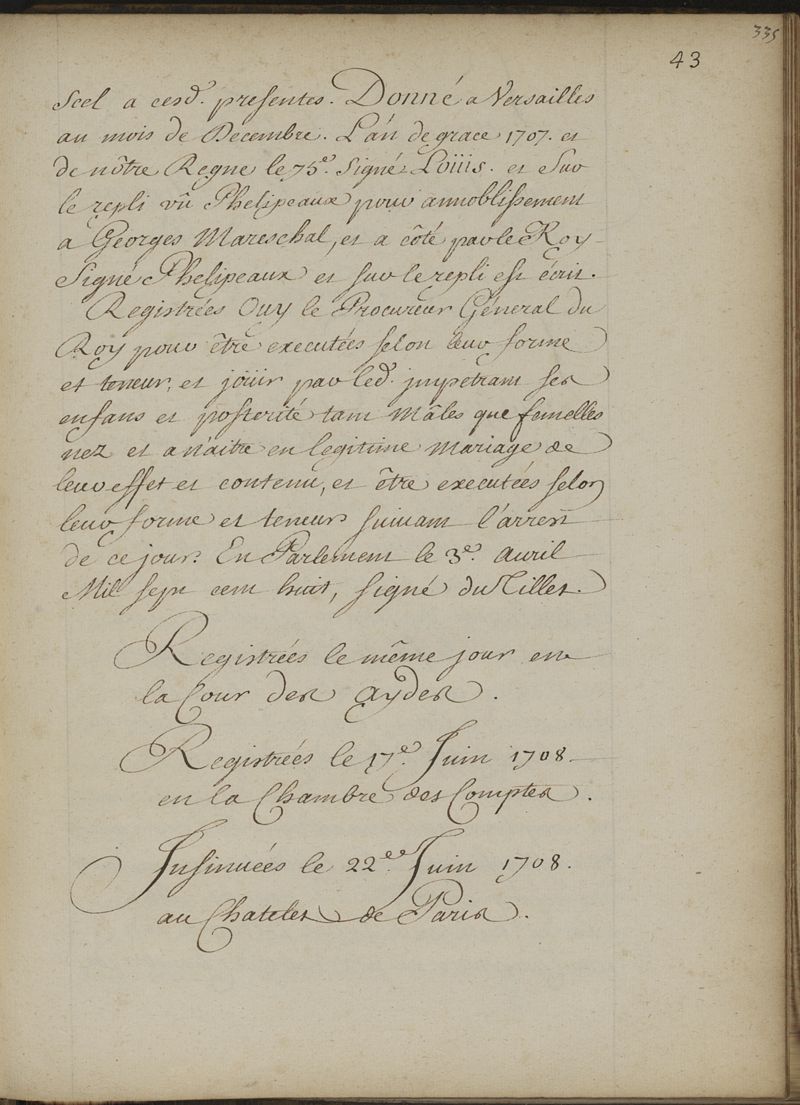 335
43
Scel a cesd. presentes. Donné a Versailles
au mois de Decembre. L'an de grace 1707. et
de nôtre Regne le 75e. Signé Loüis. et Sur
le repli vû Phelipeaux pour annoblissement
a Georges Mareschal, et a côté par le Roy
Signé Phelipeaux et sur le repli est écrit.
Registrées Ouy le Procureur Géneral du
Roy pour être executées selon leur forme
et teneur, et joüir par led. impetrant ses
enfans et posterité tant Mâles que femelles
nez et a naître en legitime Mariage de
leur effet et contenu, et être executées selon
leur forme et teneur suivant l'arrest
de ce jour. En Parlement le 3e. Avril
Mil sept cent huit, signé du Tillet.
Registrées le même jour en
la Cour des Aydes.
Registrées le 17e. Juin 1708.
en la Chambre des Comptes.
Insinuées le 22e. Juin 1708.
au Chatelet de Paris.